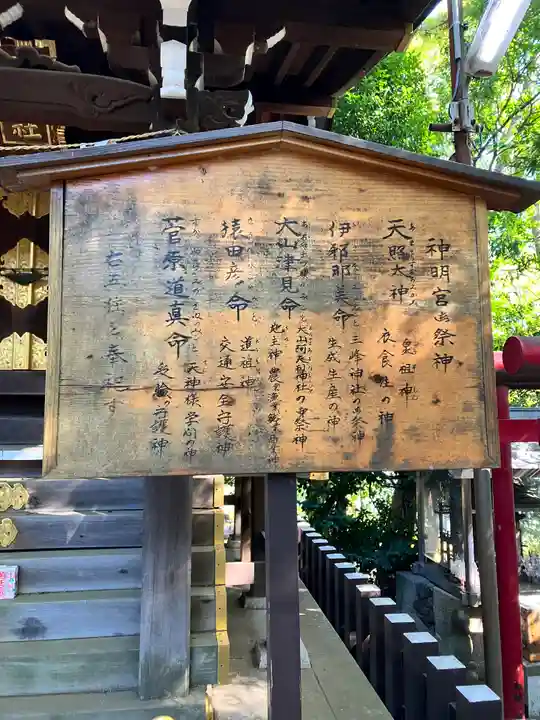 神明宮御祭神
天照大神
皇祖神
衣食住の神
伊邪那美命
三峰神社の祭神
生成生産の神
大山津見命
大山阿夫利神社の御祭神
地主神
猿田彦命
道祖神
交通安全守護神
菅原道真命
天神様 学問の神
守護神
右五柱を奉祀す
社